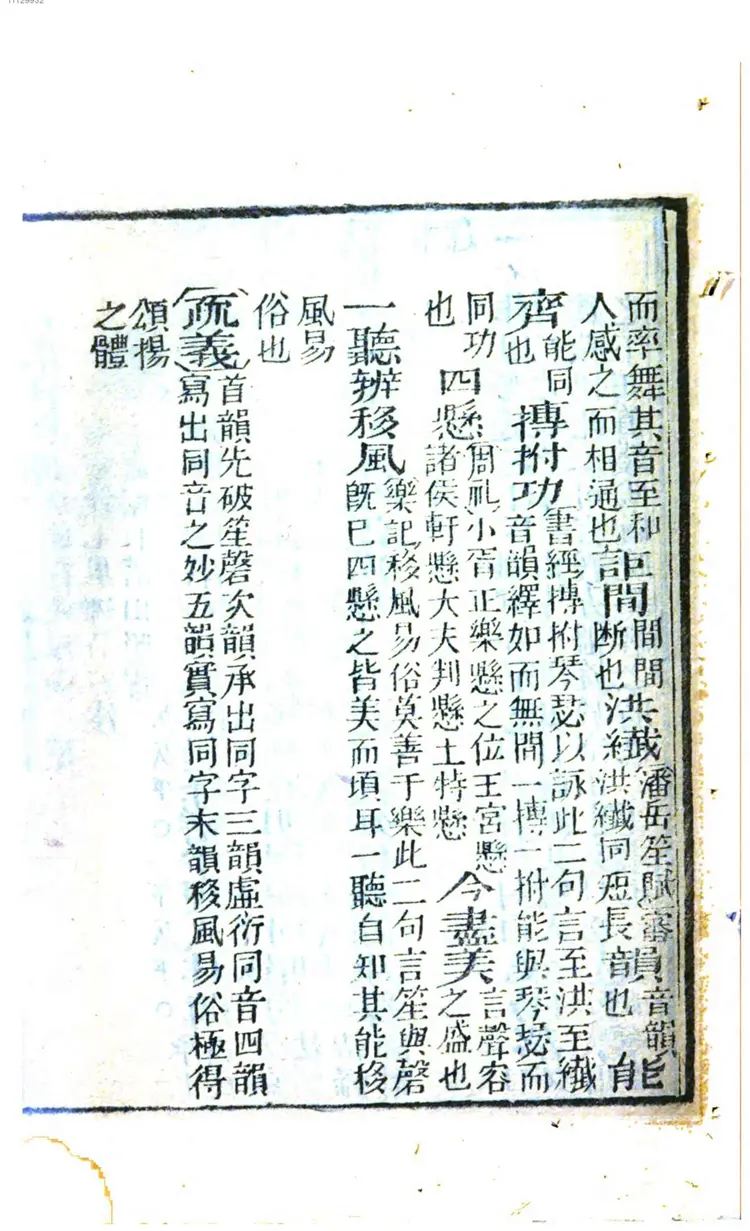 而率舞其音至和人感之而相通也詎間間間断也洪纖潘岳笙賦審洪纖同短長韻音韻也能
齊能同也搏拊功書經搏拊琴瑟以詠此二句言至洪至纖音韻繹如而無間一搏一拊能與琴瑟而
同功也四懸周礼小胥正樂懸之位王宮懸諸侯軒懸大夫判懸士特懸今盡美言聲容之盛也
一聽辨移風樂記移風易俗莫善于樂此二句言笙與磬旣已四懸之皆美而頃耳一聽自知其能移
風易俗也
疏義首韻先破笙磬次韻承出同字三韻虛衍同音四韻寫出同音之妙五韻實寫同字末韻移風易俗極得
頌揚之體